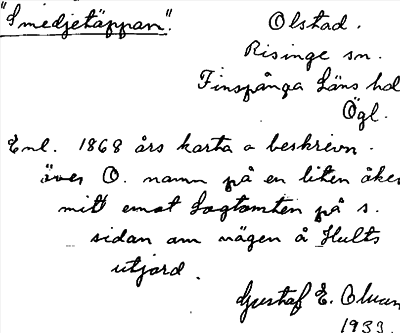 "Smedjetäppan".
Olstad.
Risinge sn.
Finspånga Läns hd
Ögl.
Enl. 1868 års karta o beskrivn.
över O. namn på en liten åker
mitt emot Logtomten på s.
sidan om vägen å Hults
utjord.
Gustaf E.
1933.